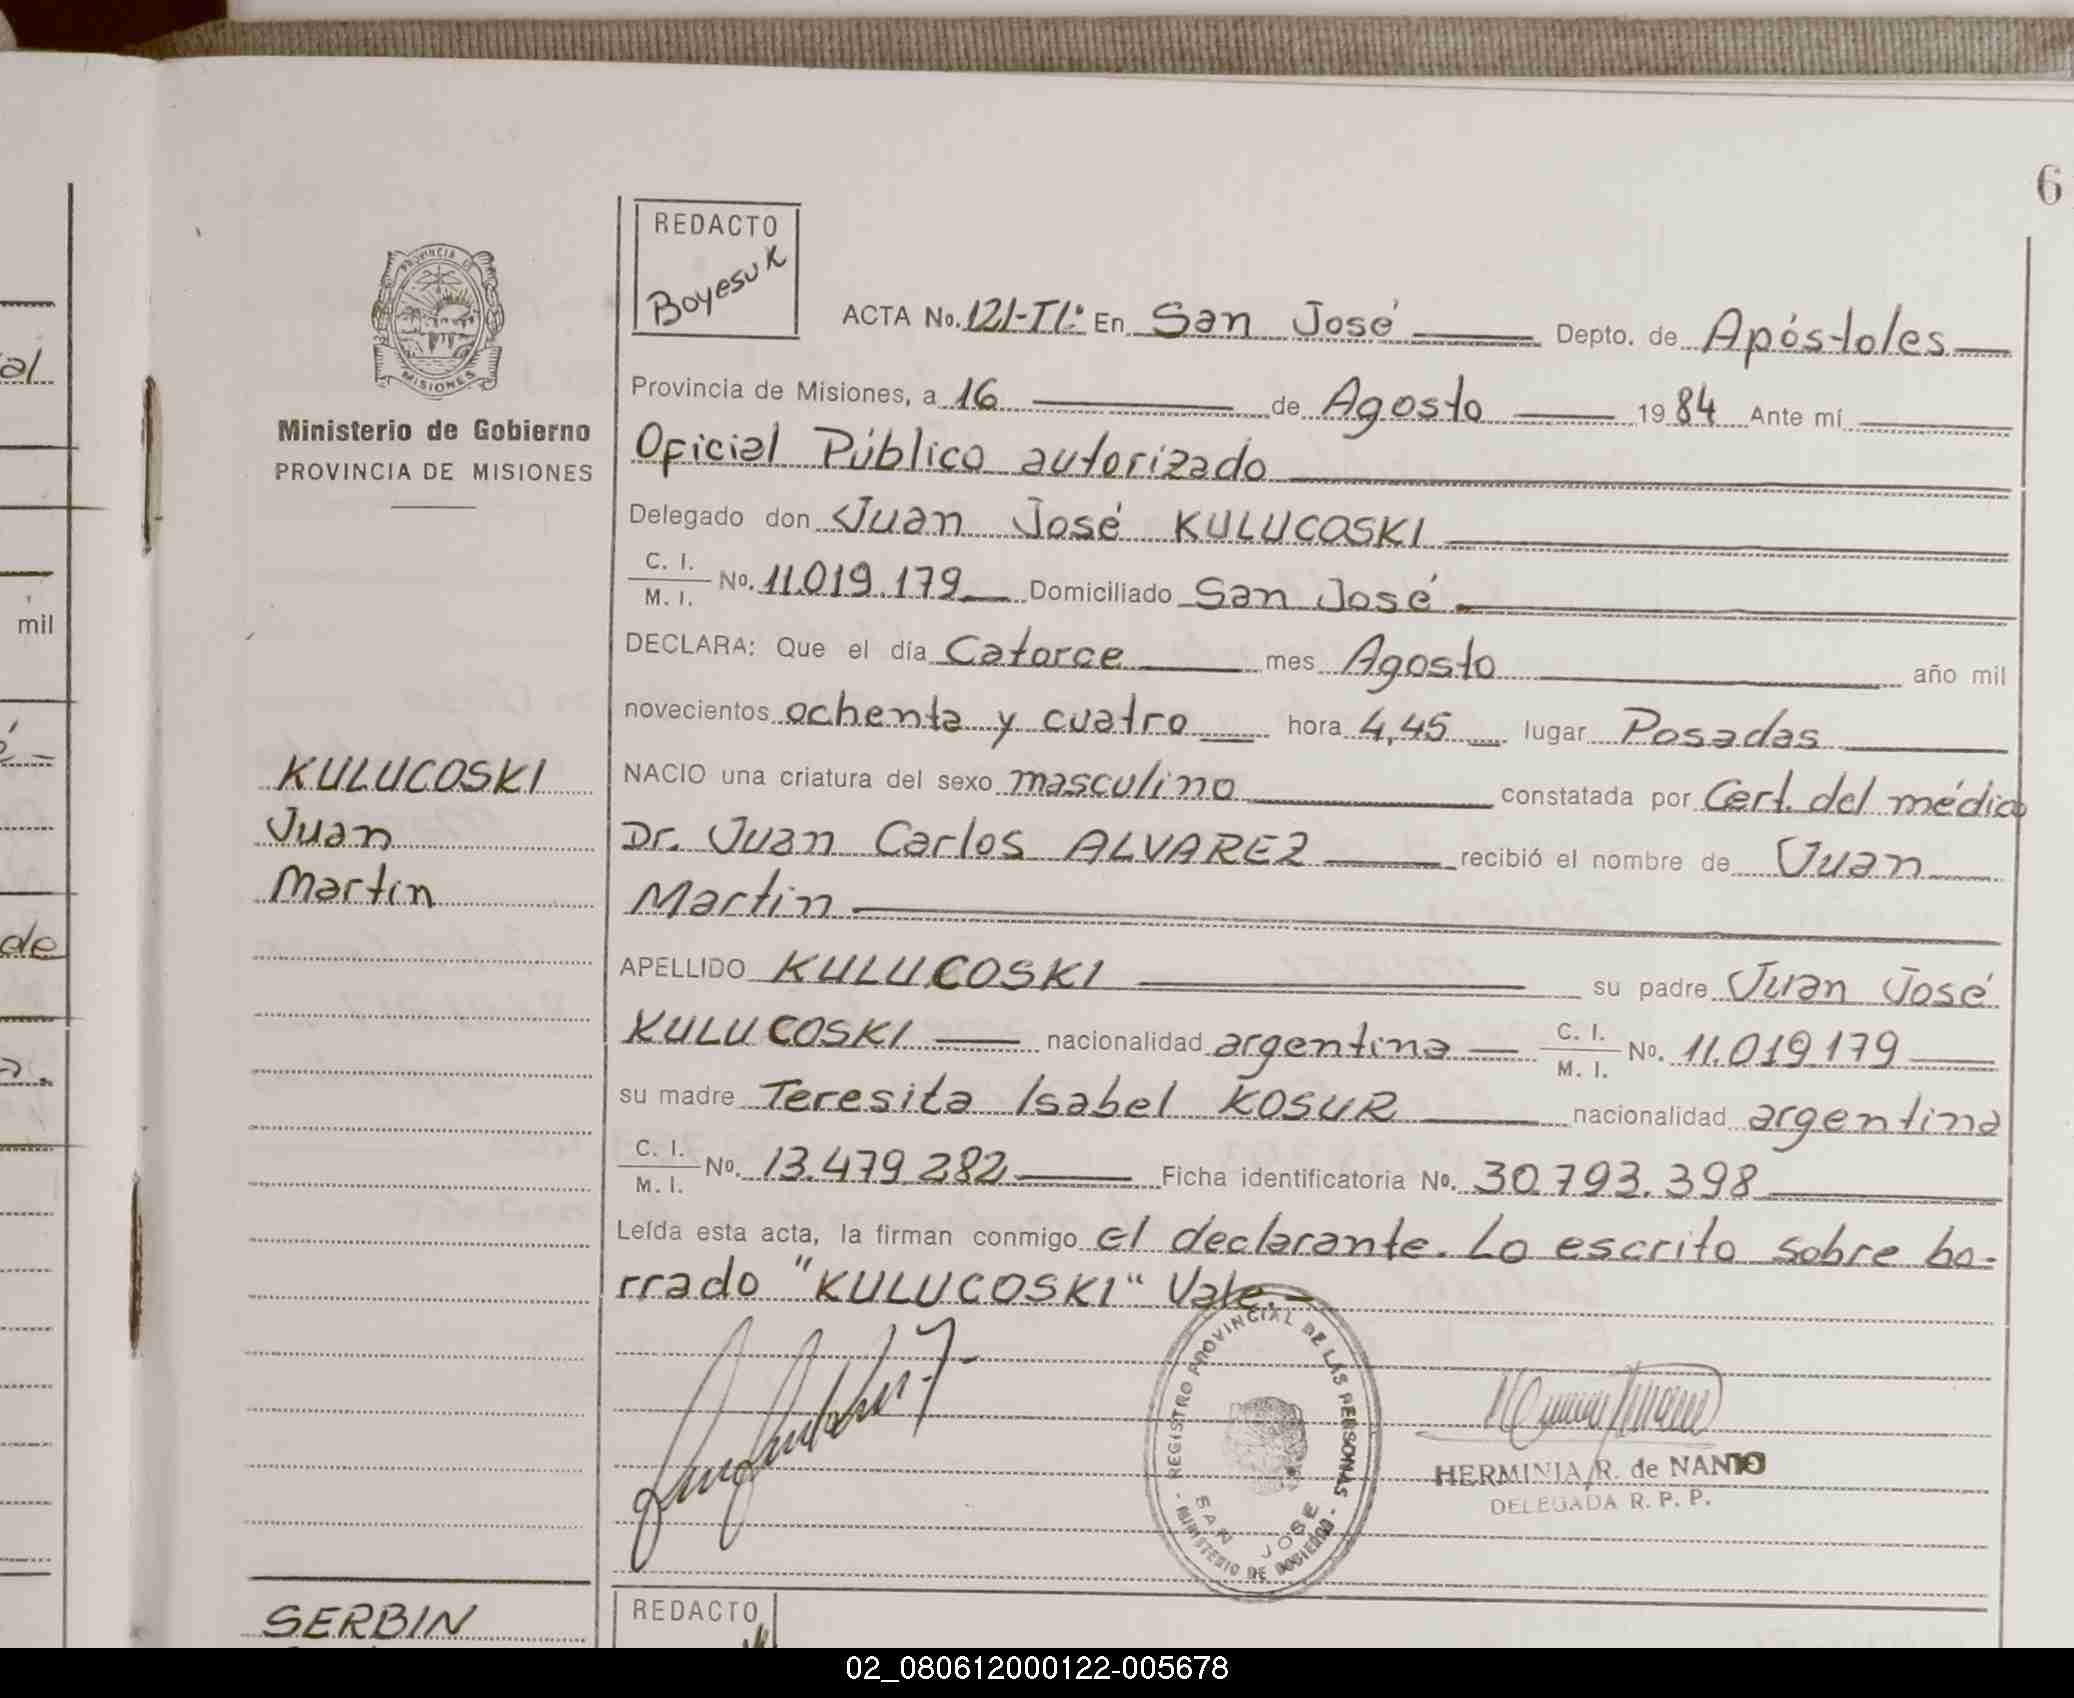 6
REDACTO
Boyesuk
PROVINCIA DE
MISIONES
Ministerio de Gobierno
PROVINCIA DE MISIONES
ACTA No. 121-TI: En San José Depto. de Apóstoles
Provincia de Misiones, a 16 de Agosto 1984 Ante mí
Oficial Público autorizado
Delegado don Juan José KULUCOSKI
C. I. / M. I. No. 11.019.179 Domiciliado San José
DECLARA: Que el día Catorce mes Agosto año mil
novecientos ochenta y cuatro hora 4,45 lugar Posadas
NACIO una criatura del sexo masculino constatada por Cert. del médico
Dr. Juan Carlos ALVAREZ recibió el nombre de Juan
Martin
APELLIDO KULUCOSKI su padre Juan José
KULUCOSKI nacionalidad argentina C. I. / M. I. No. 11.019.179
su madre Teresita Isabel KOSUR nacionalidad argentina
C. I. / M. I. No. 13.479.282 Ficha identificatoria No. 30.793.398
Leída esta acta, la firman conmigo el declarante. Lo escrito sobre bo-
rrado "KULUCOSKI" Vale.-
KULUCOSKI
Juan
Martin
REGISTRO PROVINCIAL DE LAS PERSONAS
SAN JOSE
- MINISTERIO DE GOBIERNO -
HERMINIA R. de NANTO
DELEGADA R. P. P.
SERBIN
REDACTO
al
mil
de
02_080612000122-005678